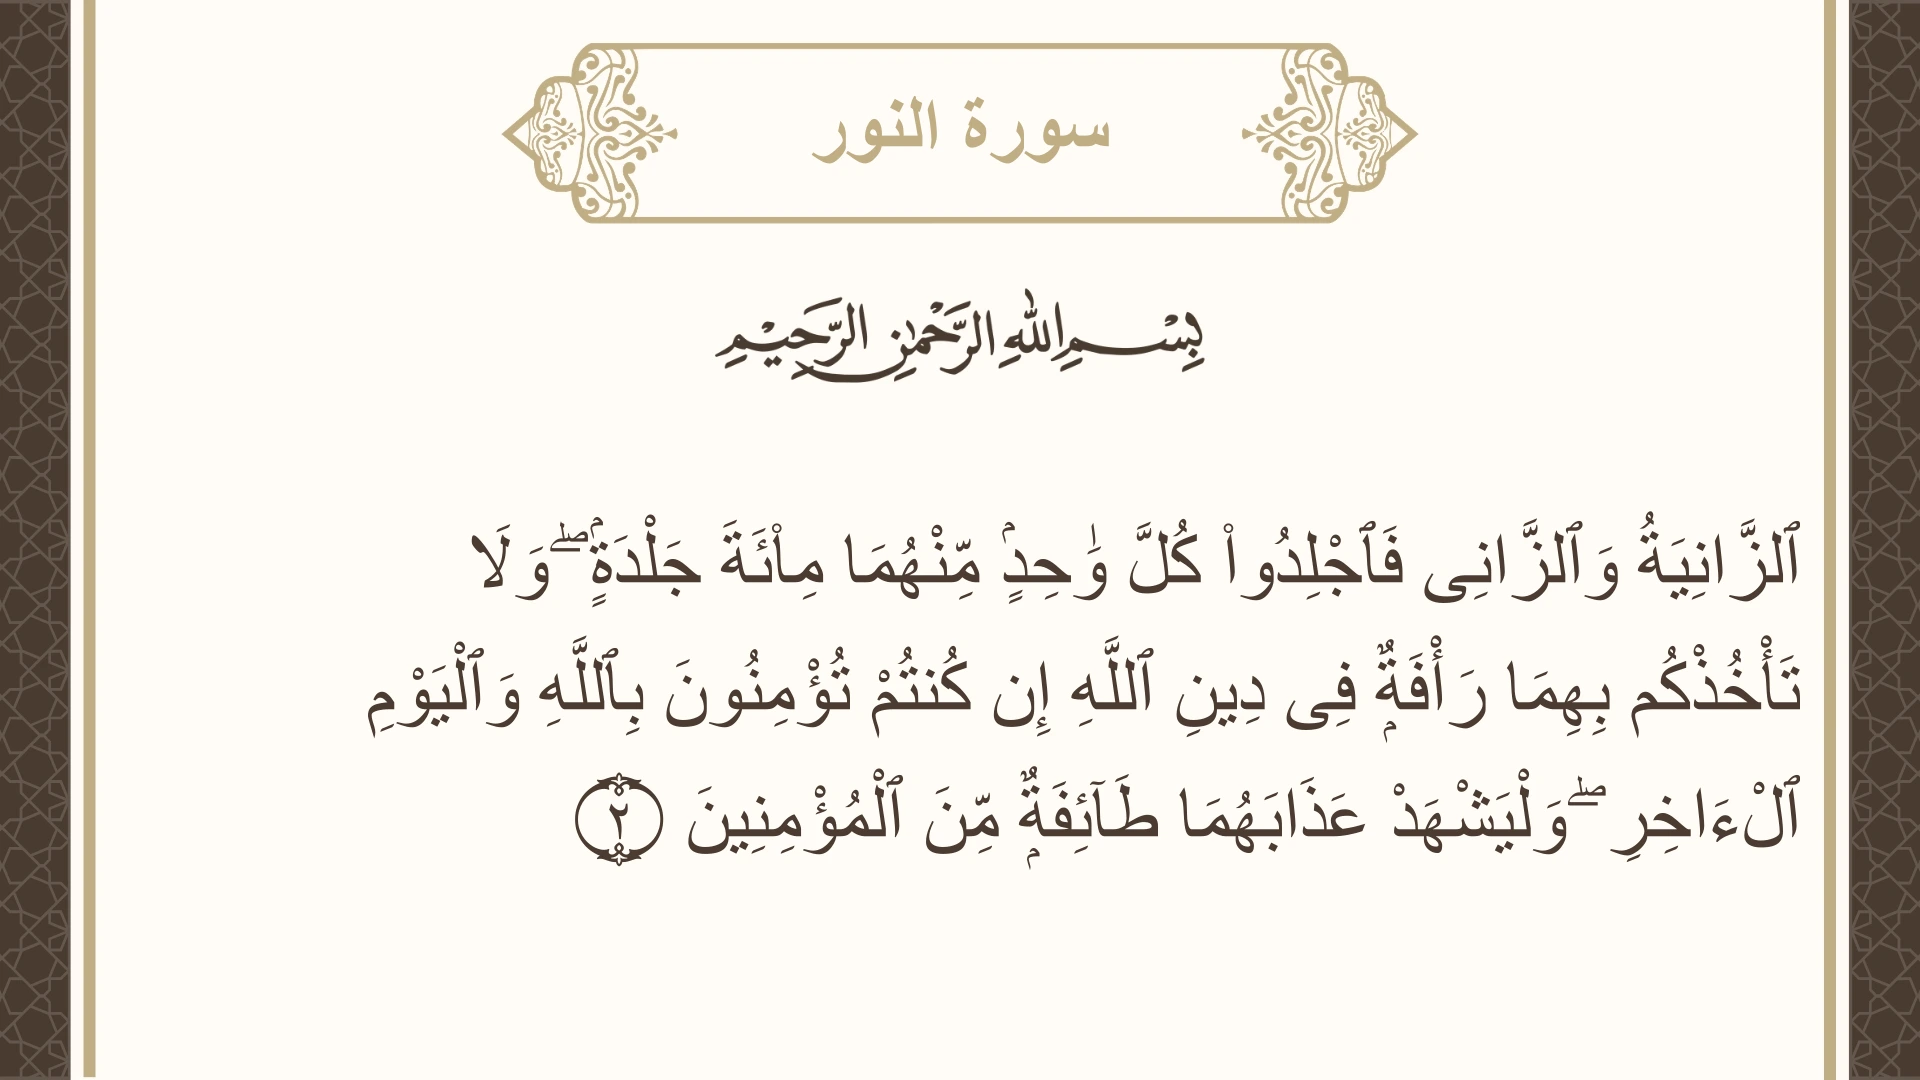 سورة النور
بِسْمِ اللهِ الرَّحْمٰنِ الرَّحِيْمِ
ٱلزَّانِيَةُ وَٱلزَّانِى فَٱجْلِدُوا۟ كُلَّ وَٰحِدٍۢ مِّنْهُمَا مِا۟ئَةَ جَلْدَةٍۢ ۖ وَلَا
تَأْخُذْكُم بِهِمَا رَأْفَةٌۭ فِى دِينِ ٱللَّهِ إِن كُنتُمْ تُؤْمِنُونَ بِٱللَّهِ وَٱلْيَوْمِ
ٱلْـَٔاخِرِ ۖ وَلْيَشْهَدْ عَذَابَهُمَا طَآئِفَةٌۭ مِّنَ ٱلْمُؤْمِنِينَ ٢